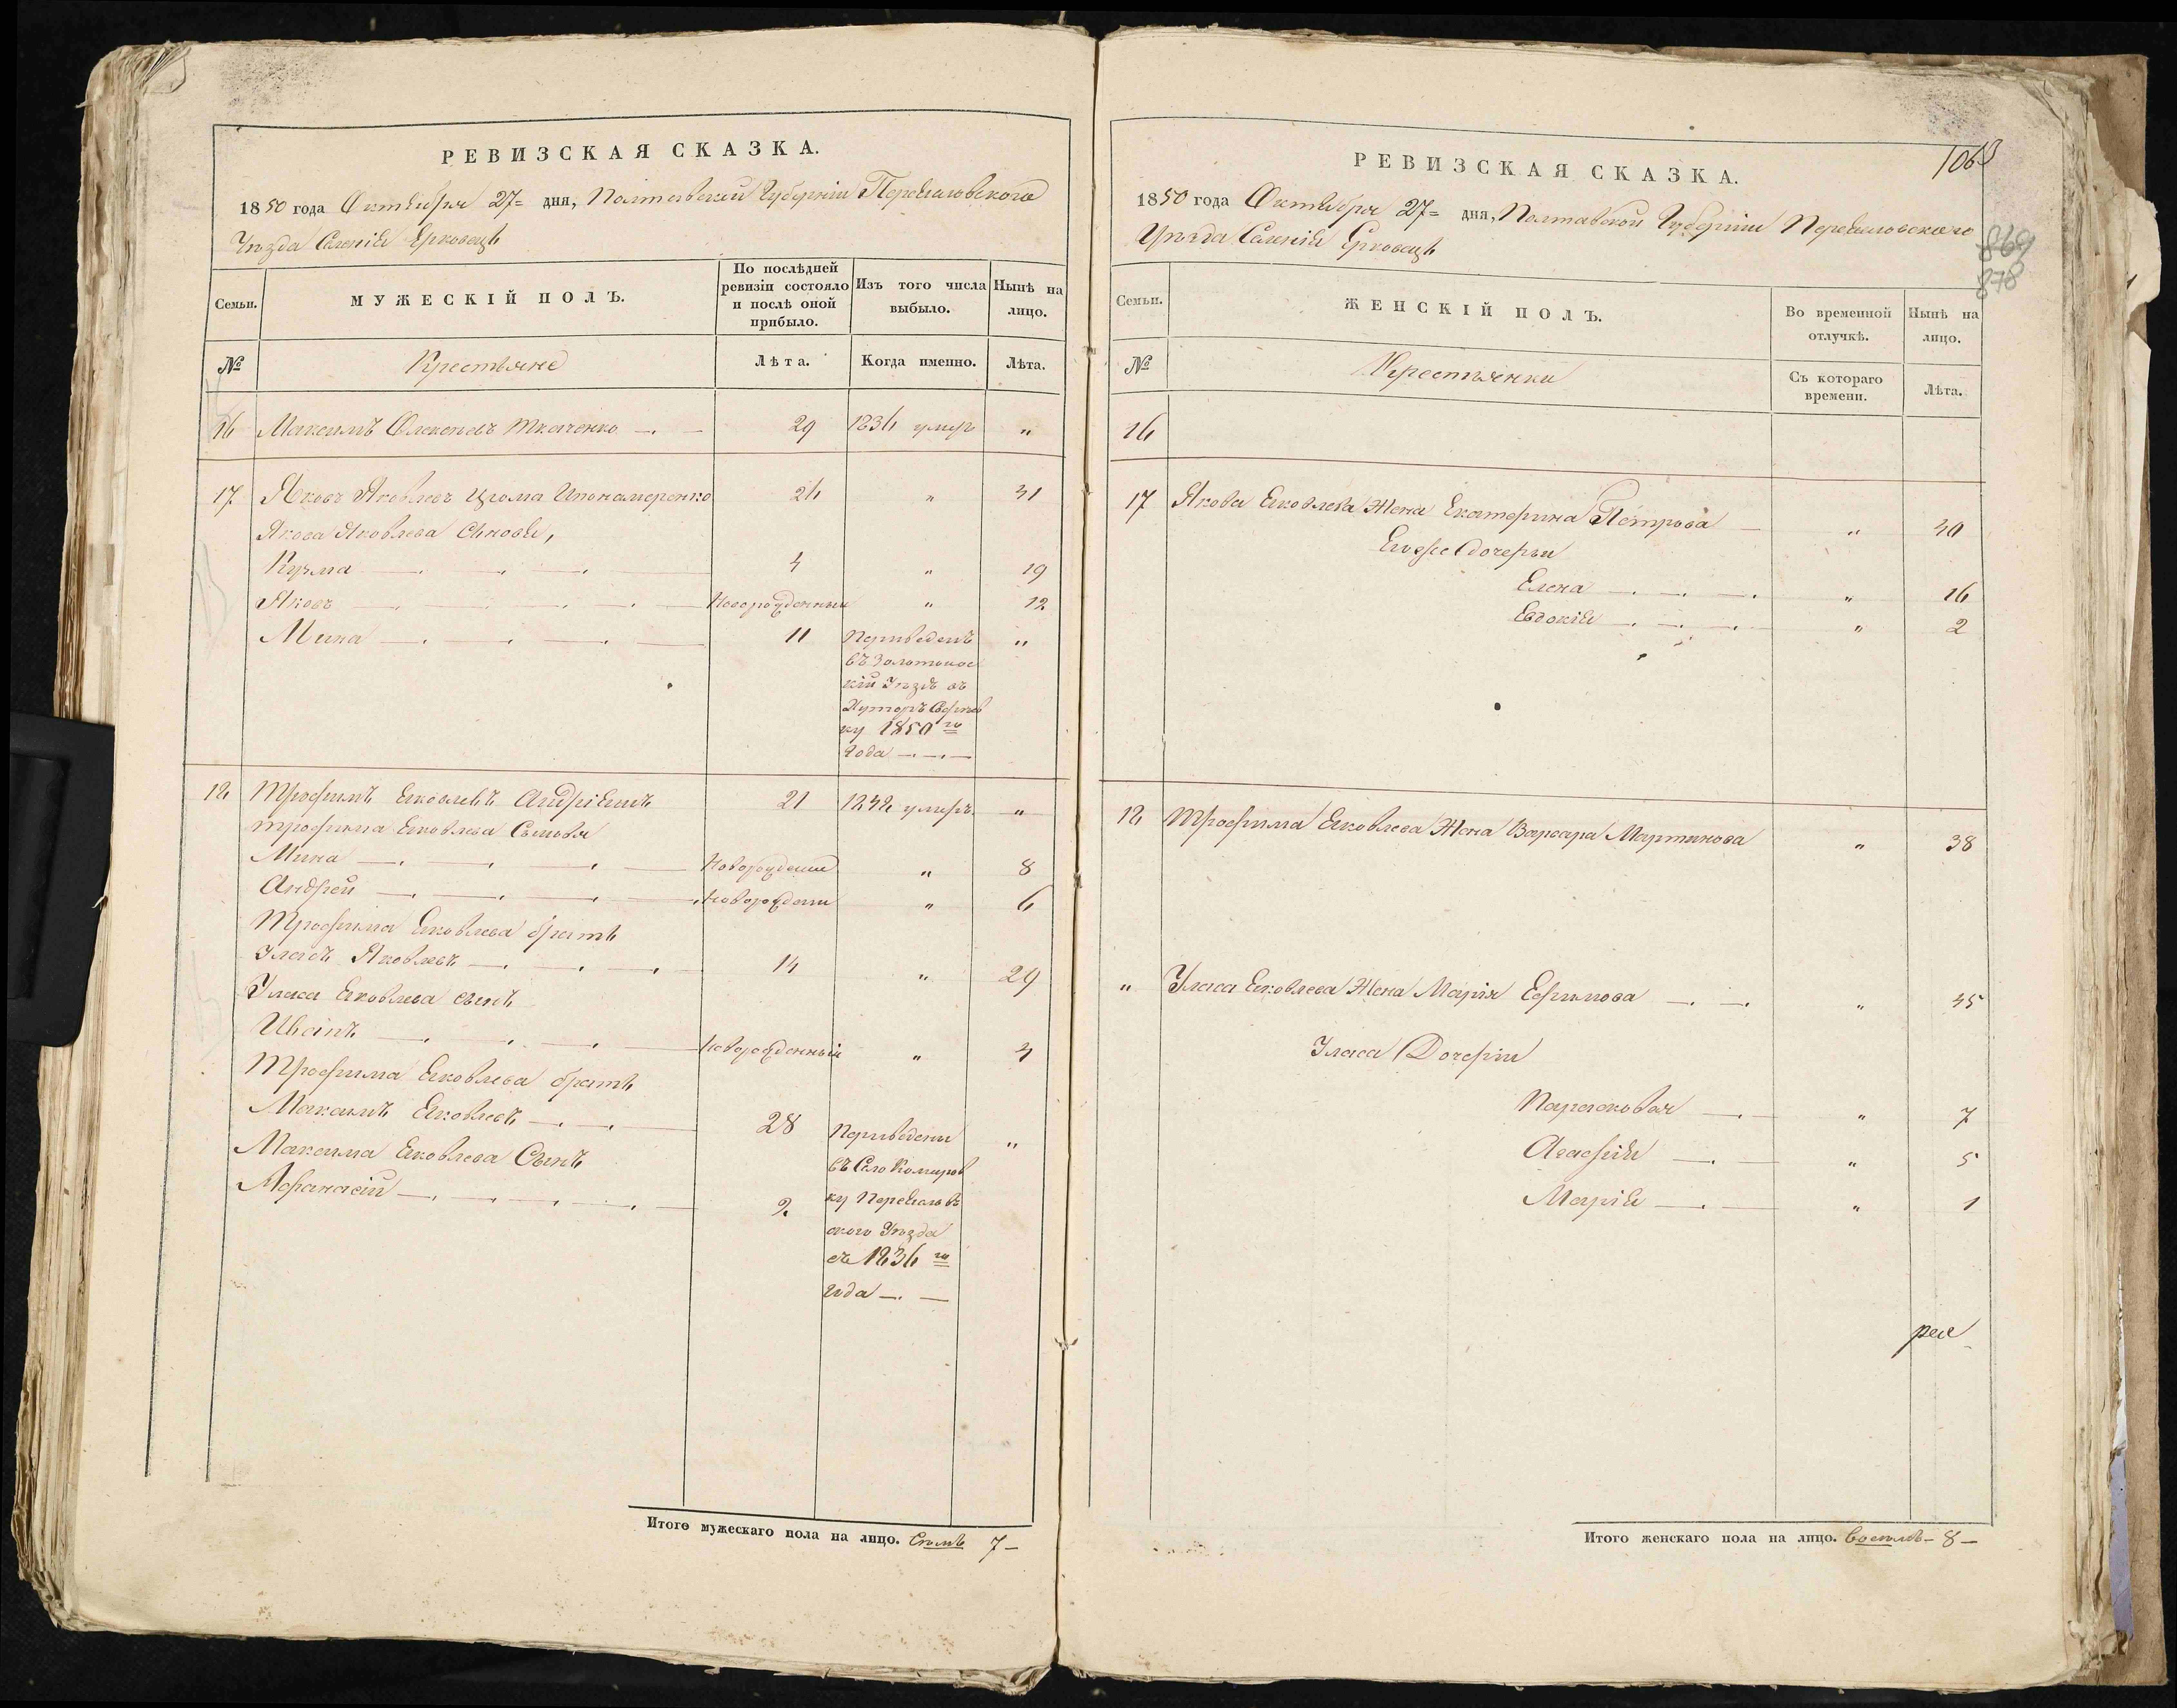 РЕВИЗСКАЯ СКАЗКА.
1850 года Октября 27= дня, Полтавской Губерніи Переяловского
Уѣзда Селенія Ерковець
Семьи.
МУЖЕСКІЙ ПОЛЪ.
По послѣдней ревизіи состояло и послѣ оной прибыло.
Изъ того числа выбыло.
Нынѣ на лицо.
№
Крестьяне
Лѣта.
Когда именно.
Лѣта.
16 Максимъ Ткаченко 29 1836 умеръ "
17 Яковъ Яковлевъ Паномаренко 26 " 41
Якова Яковлева Сыновья,
Кузма 4 " 19
Яковъ Новорожденный " 12
Мина 11 Переведенъ "
въ Золотонос
кій Уѣздъ въ
Хуторъ
ку 1850го
года
18 Трофимъ Яковлевъ 21 1842 умеръ "
Трофима Яковлева Сыновья
Мина Новорожденный " 8
Андрей Новорожден " 6
Трофима Яковлева братъ
Уласъ Яковлевъ 14 " 29
Уласа Яковлева сынъ
Иванъ Новорожденный " 4
Трофима Яковлева братъ
Максимъ Яковлевъ 28 Переведены "
Максима Яковлева Сынъ въ Село Комаров
Афанасій 2 ку Переяловъ
ского Уѣзда
съ 1836го
года
Итого мужескаго пола на лицо. Семь 7
РЕВИЗСКАЯ СКАЗКА.
1063
1850 года Октября 27= дня, Полтавской Губерніи Переяловского
Уѣзда Селенія Ерковець
869
878
Семьи.
ЖЕНСКІЙ ПОЛЪ.
Во временной отлучкѣ.
Нынѣ на лицо.
№
Крестьянки
Съ котораго времени.
Лѣта.
16
17 Якова Яковлева Жена Екатерина Петрова " 40
Егоже дочерьи
Елена " 16
Евдокія " 2
18 Трофима Яковлева Жена Варвара Мартинова " 38
" Уласа Яковлева Жена Марія Ефимова " 45
Уласа Дочеріи
Парасковая " 7
Агафія " 5
Марія " 1
Итого женскаго пола на лицо. Восемь 8